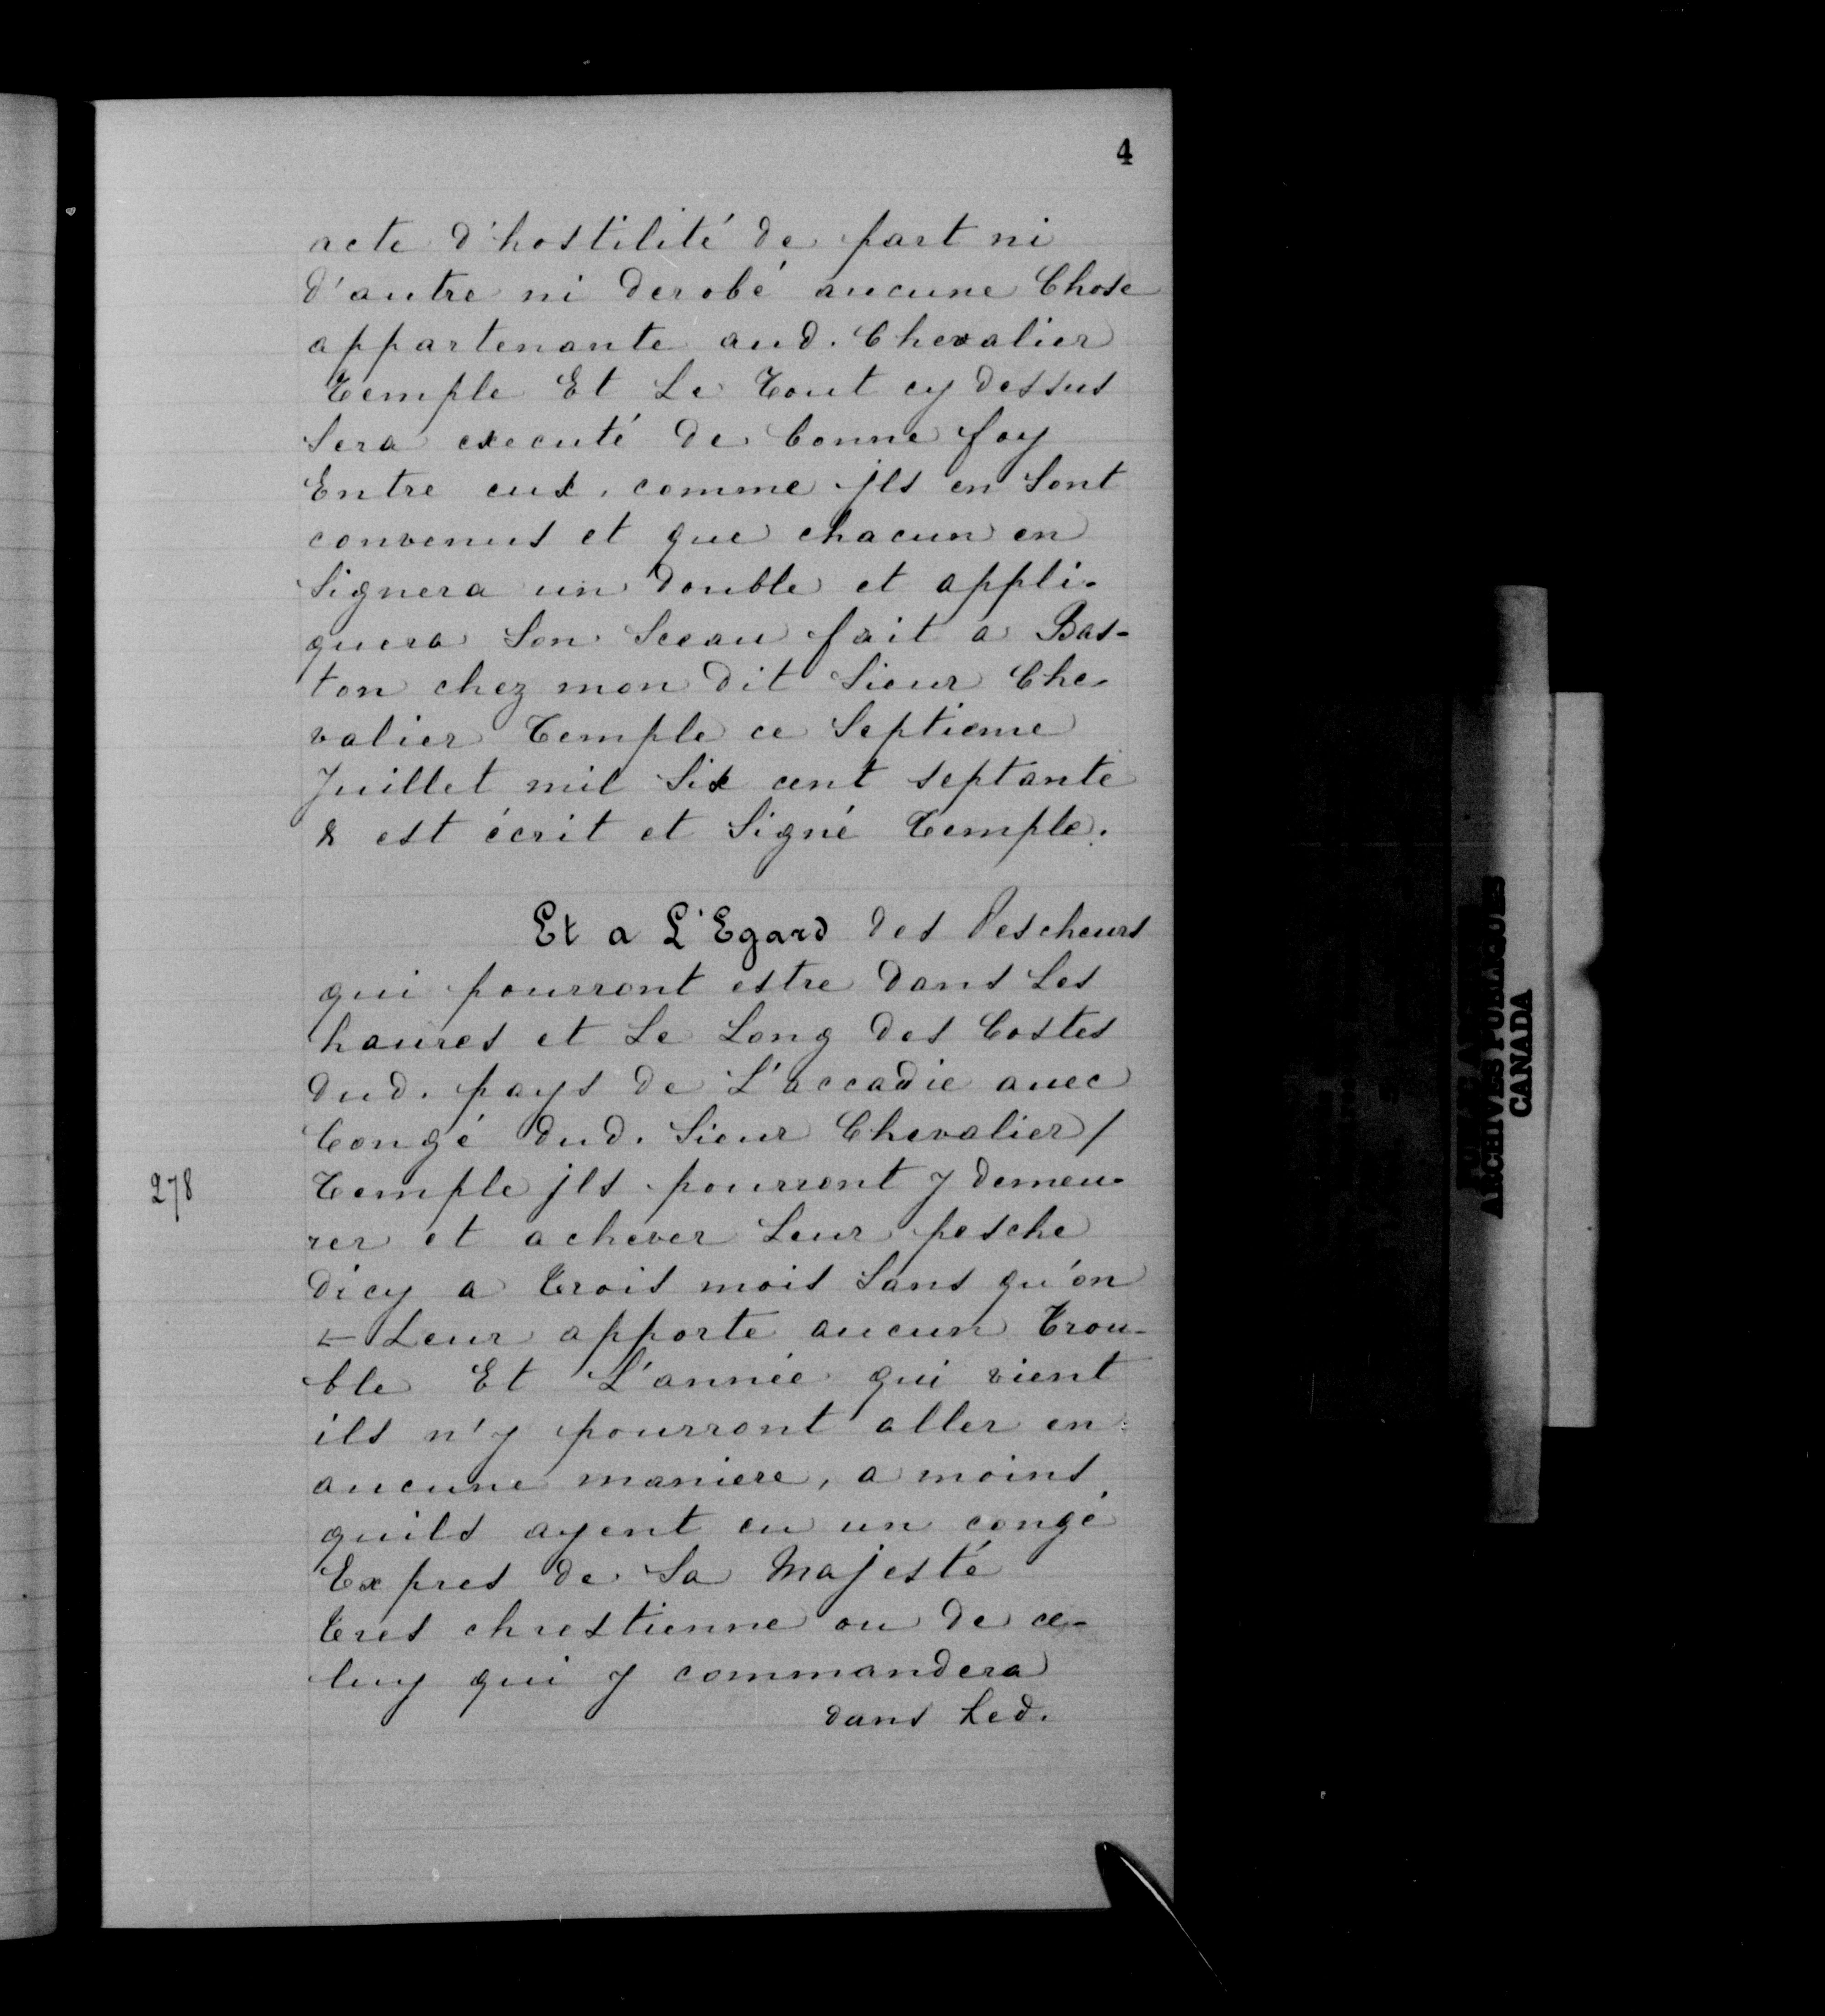 4
acte d'hostilité de part ni
d'autre ni derobé aucune Chose
appartenante aud. Chevalier
Temple Et Le Tout cy dessus
Sera executé de bonne foy
Entre eux, comme jls en Sont
convenus et que chacun en
Signera un double et appli-
quera Son Sceau fait a Bas-
ton chez mon dit Sieur Che-
valier Temple ce Septieme
Juillet mil Six cent septante
& est écrit et Signé Temple.
Et a L'Egard des Pescheurs
qui pourront estre dans Les
haures et Le Long des Costes
dud. pays de L'accadie auec
Congé dud. Sieur Chevalier /
278
Temple jls pourront y demeu-
rer et achever Leur pesche
dicy a trois mois Sans qu'on
Leur apporte aucun Trou-
ble Et L'année qui vient
ils n'y pourront aller en
aucune maniere, a moins
quils ayent eu un congé
Expres de Sa Majesté
tres chrestienne ou de ce-
luy qui y commandera
dans Led.
ARCHIVES PUBLIQUES
CANADA